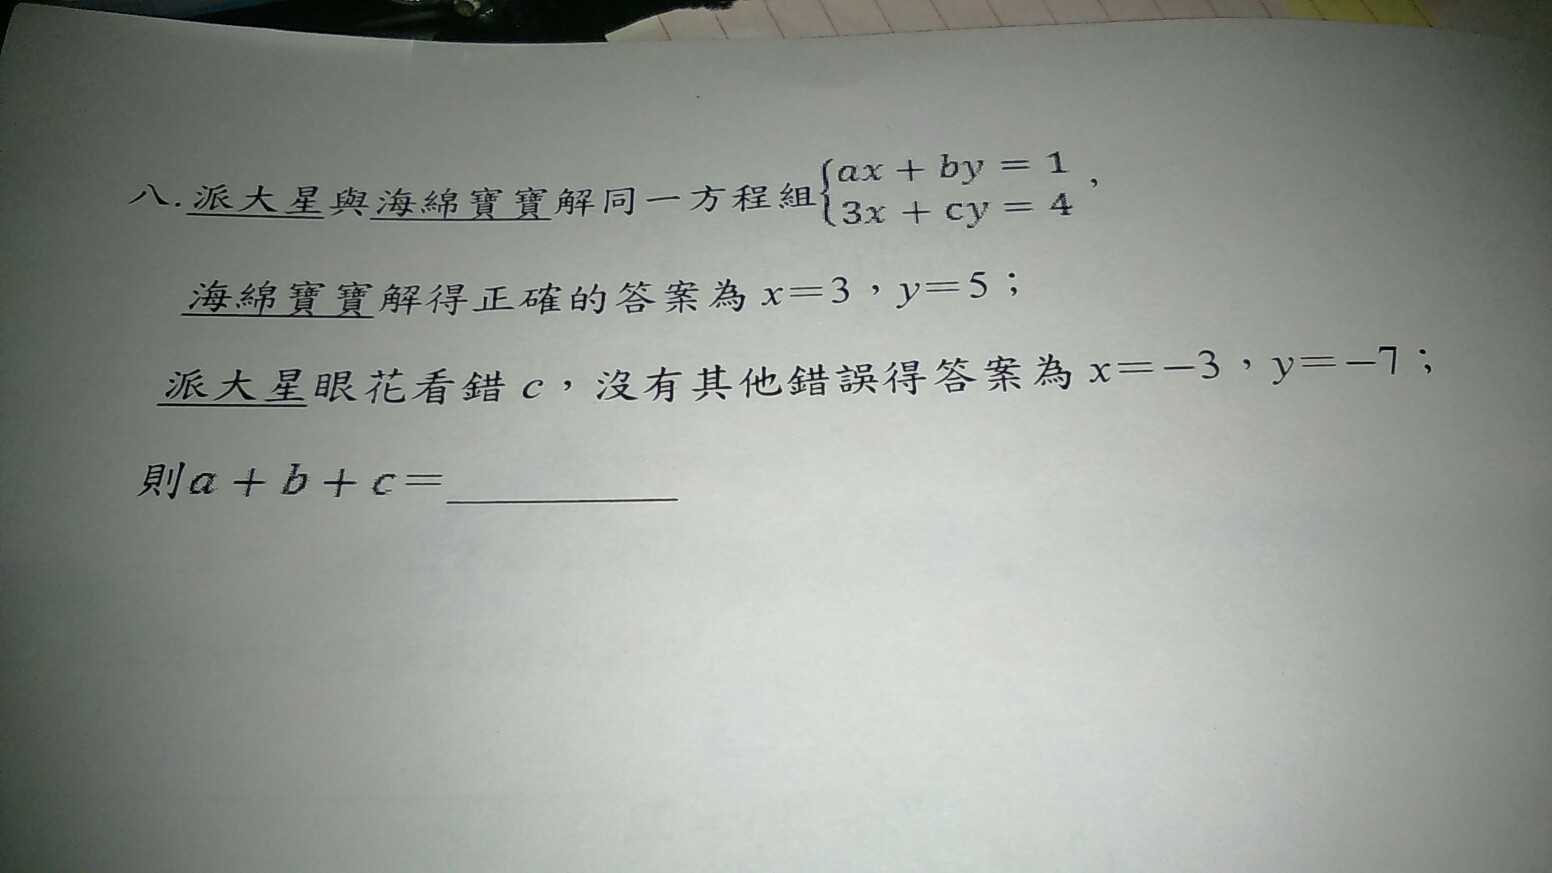 八.派大星與海綿寶寶解同一方程組{ax + by = 1
3x + cy = 4，
海綿寶寶解得正確的答案為 x=3，y=5；
派大星眼花看錯 c，沒有其他錯誤得答案為 x=−3，y=−7；
則a + b + c=________